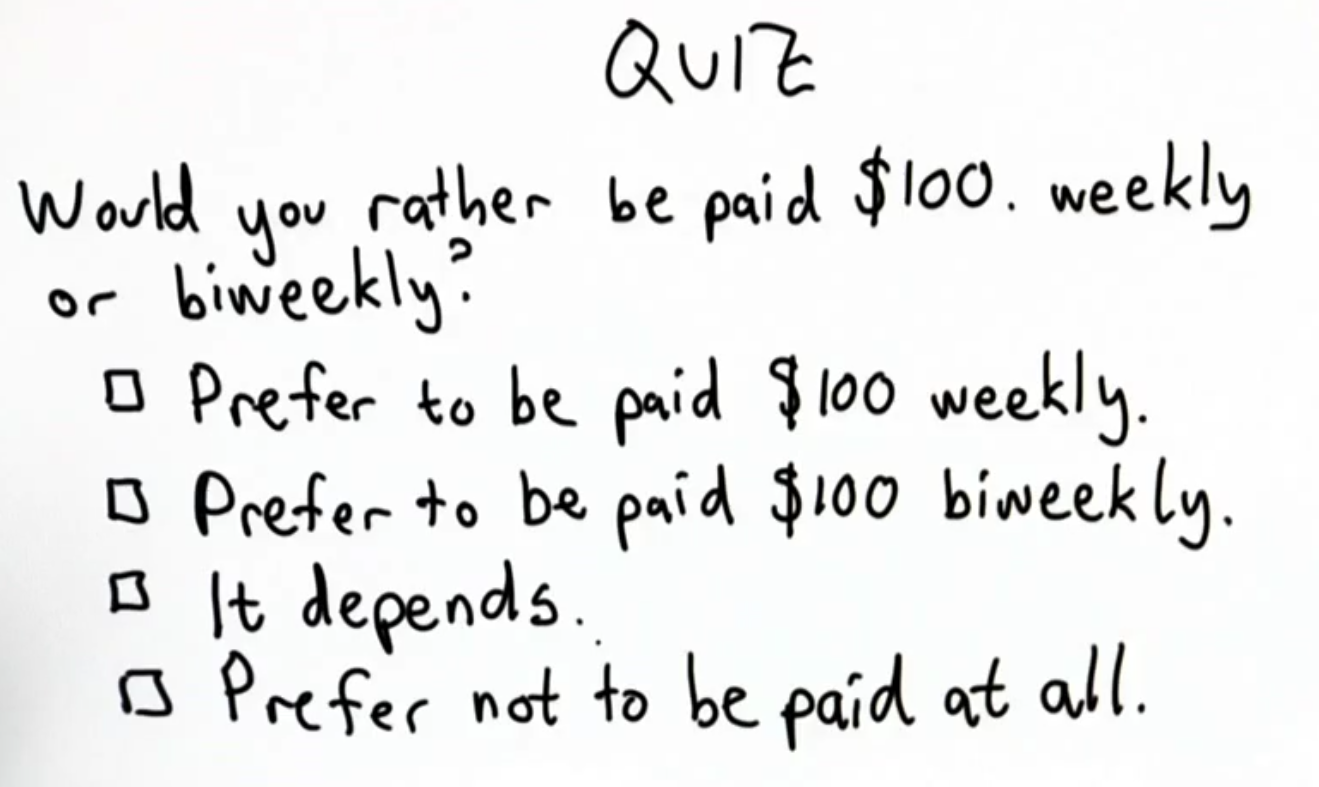 QUIZ
Would you rather be paid $100. weekly
or biweekly?
Prefer to be paid $100 weekly.
Prefer to be paid $100 biweekly.
It depends.
Prefer not to be paid at all.